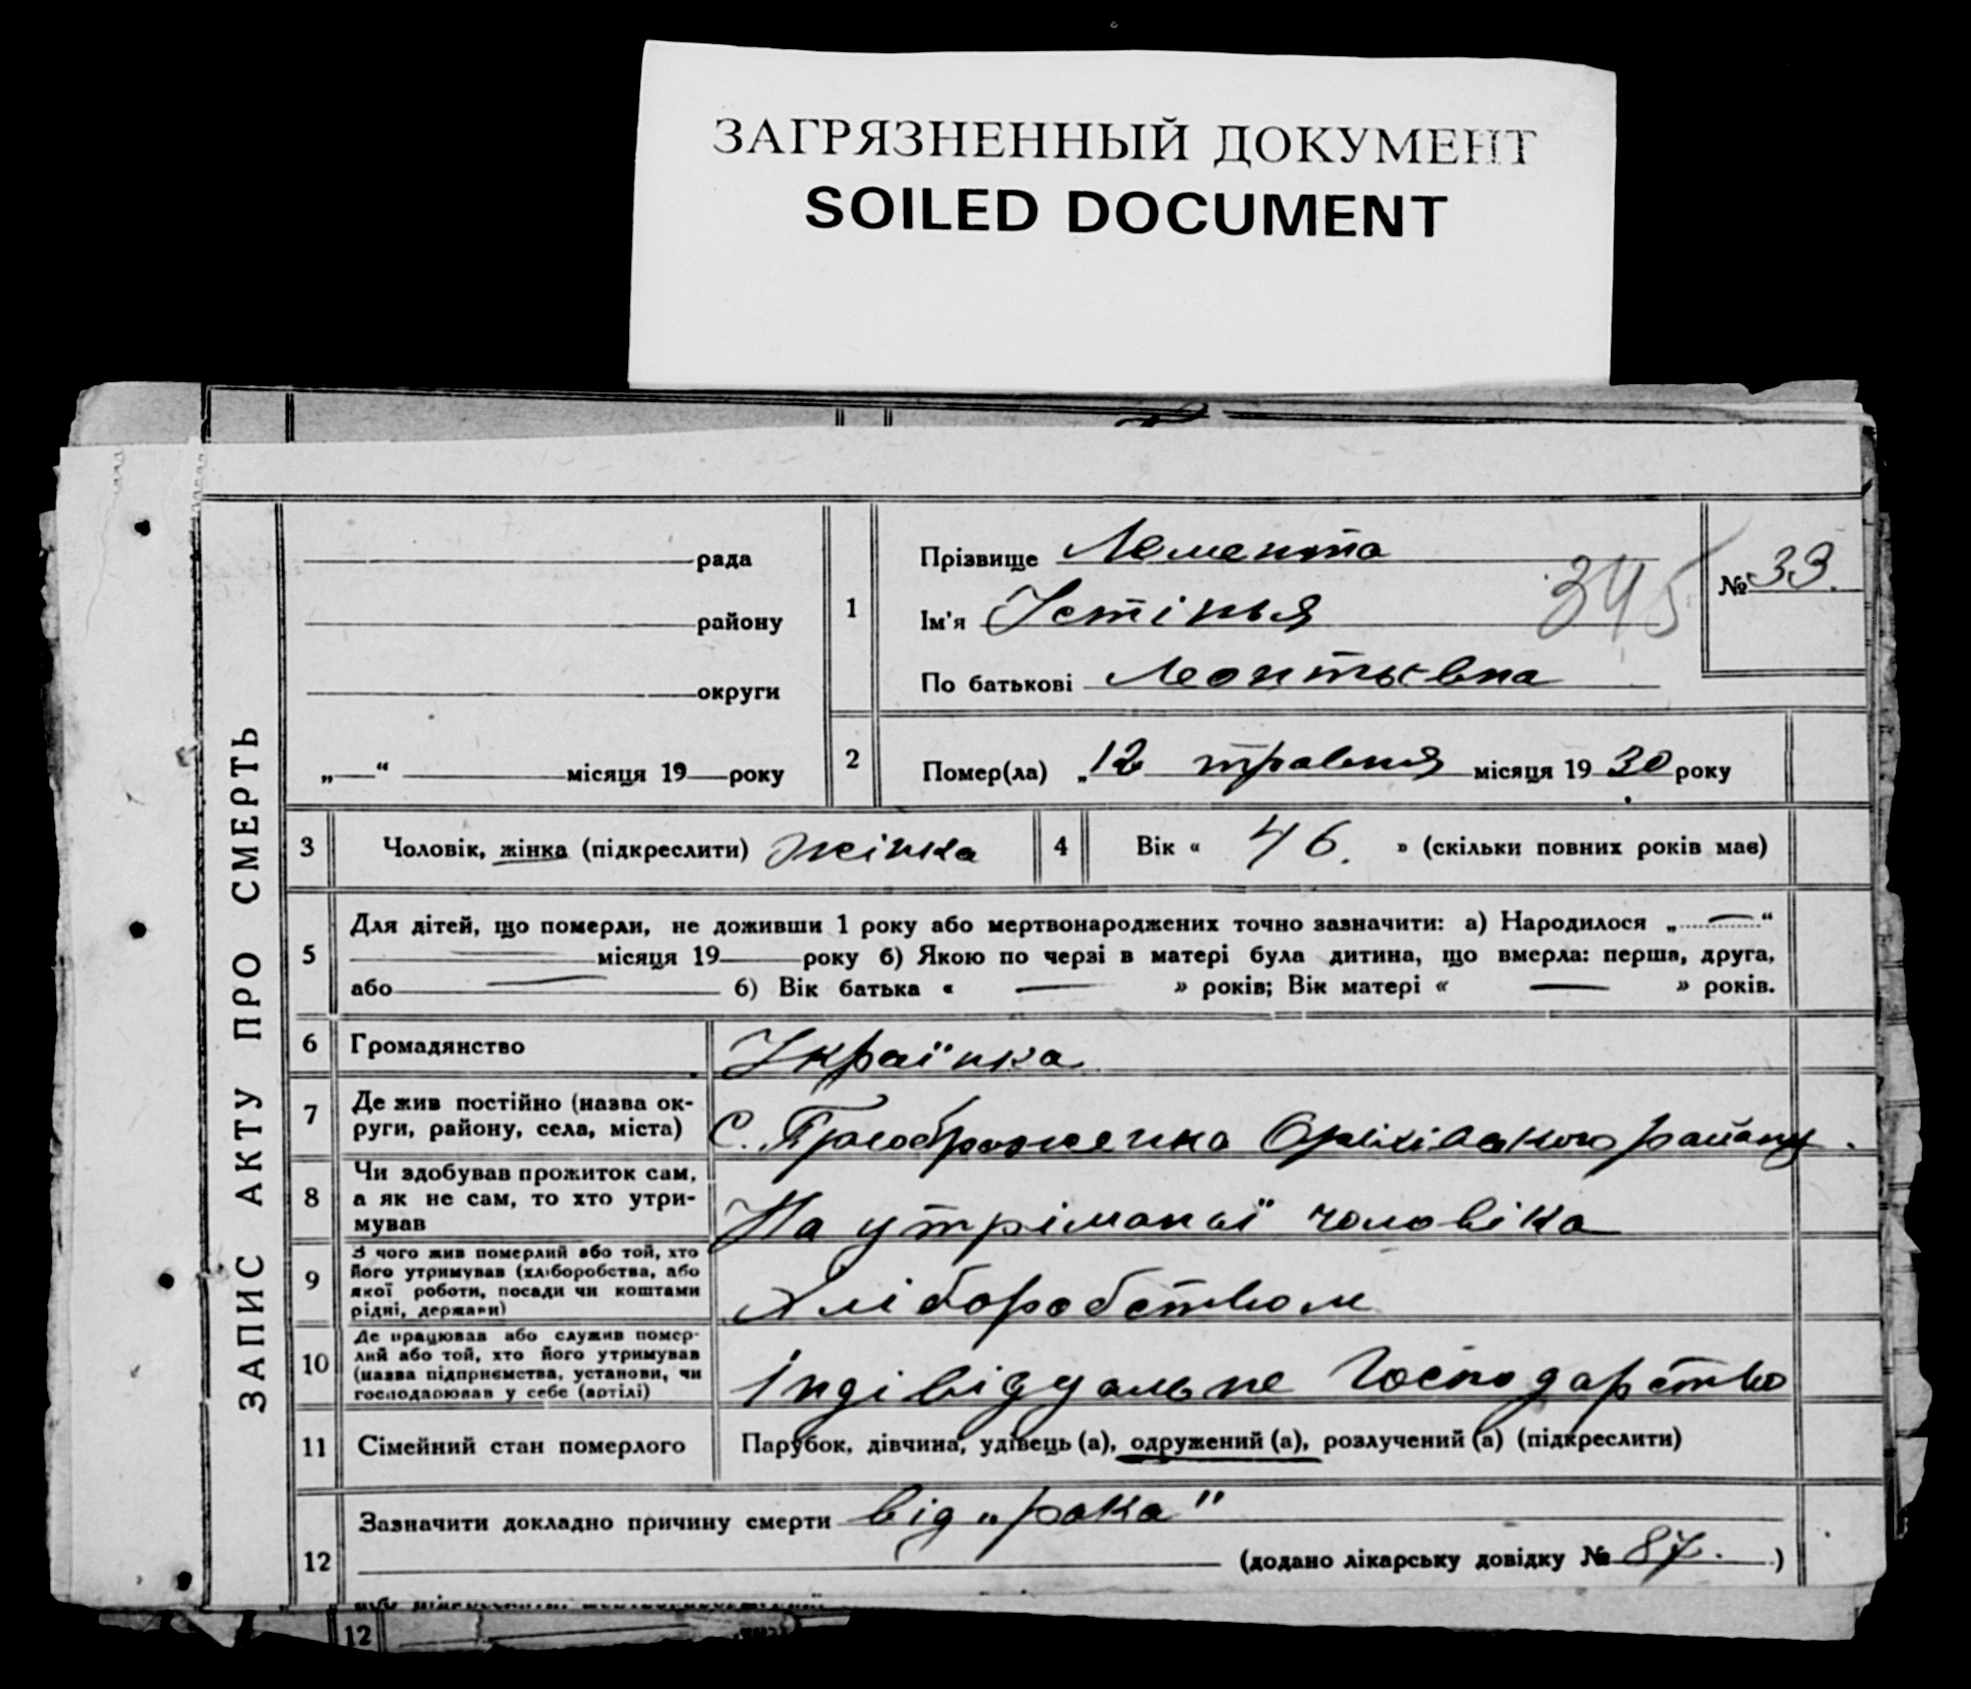 ЗАГРЯЗНЕННЫЙ ДОКУМЕНТ
SOILED DOCUMENT
ЗАПИС АКТУ ПРО СМЕРТЬ
рада
району
округи
„—“ місяця 19 року
1
Прізвище Лемента
Ім'я Устінья
По батькові Леонтьевна
345
№ 33.
2
Помер(ла) „12 травня місяця 1930 року
3
Чоловік, жінка (підкреслити) жінка
4
Вік « 46. » (скільки повних років має)
5
Для дітей, що померли, не доживши 1 року або мертвонароджених точно зазначити: а) Народилося „—“
місяця 19 року б) Якою по черзі в матері була дитина, що вмерла: перша, друга,
або — б) Вік батька « — » років; Вік матері « — » років.
6
Громадянство Українка
7
Де жив постійно (назва ок-
руги, району, села, міста) С. Преображенка Оріхівського району.
8
Чи здобував прожиток сам,
а як не сам, то хто утри-
мував На утріманьї чоловіка
9
З чого жив померлий або той, хто
його утримував (хліборобства, або
якої роботи, посади чи коштами
рідні, держави) Хліборобством
10
Де працював або служив помер-
лий або той, хто його утримував
(назва підприємства, установи, чи
господарював у себе (артілі) Індівідуальне Господарство
11
Сімейний стан померлого Парубок, дівчина, удівець (а), одружений (а), розлучений (а) (підкреслити)
12
Зазначити докладно причину смерти від „рака"
(додано лікарську довідку № 87.)
12